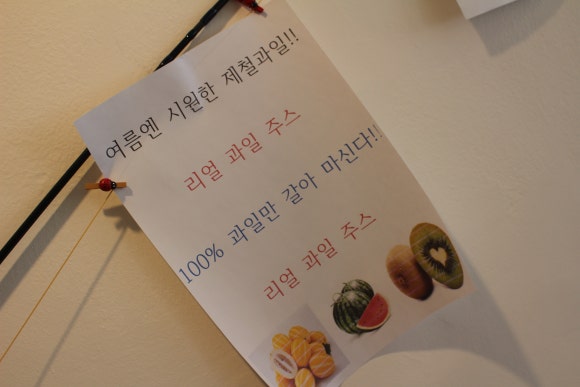 여름엔 시원한 제철과일!!
리얼 과일 주스
100% 과일만 갈아 마신다!!
리얼 과일 주스